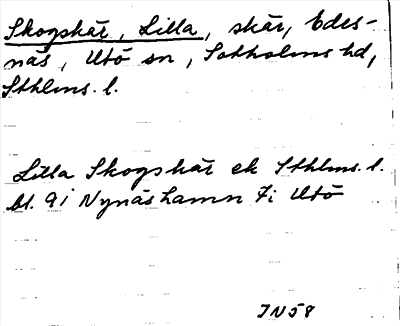 Skogskär, Lilla, skär, Edes-
näs, Utö sn, Sotholms hd,
Sthlms. l.
Lilla Skogskär ek Sthlms. l.
bl. 9i Nynäshamn 7i Utö
IN58